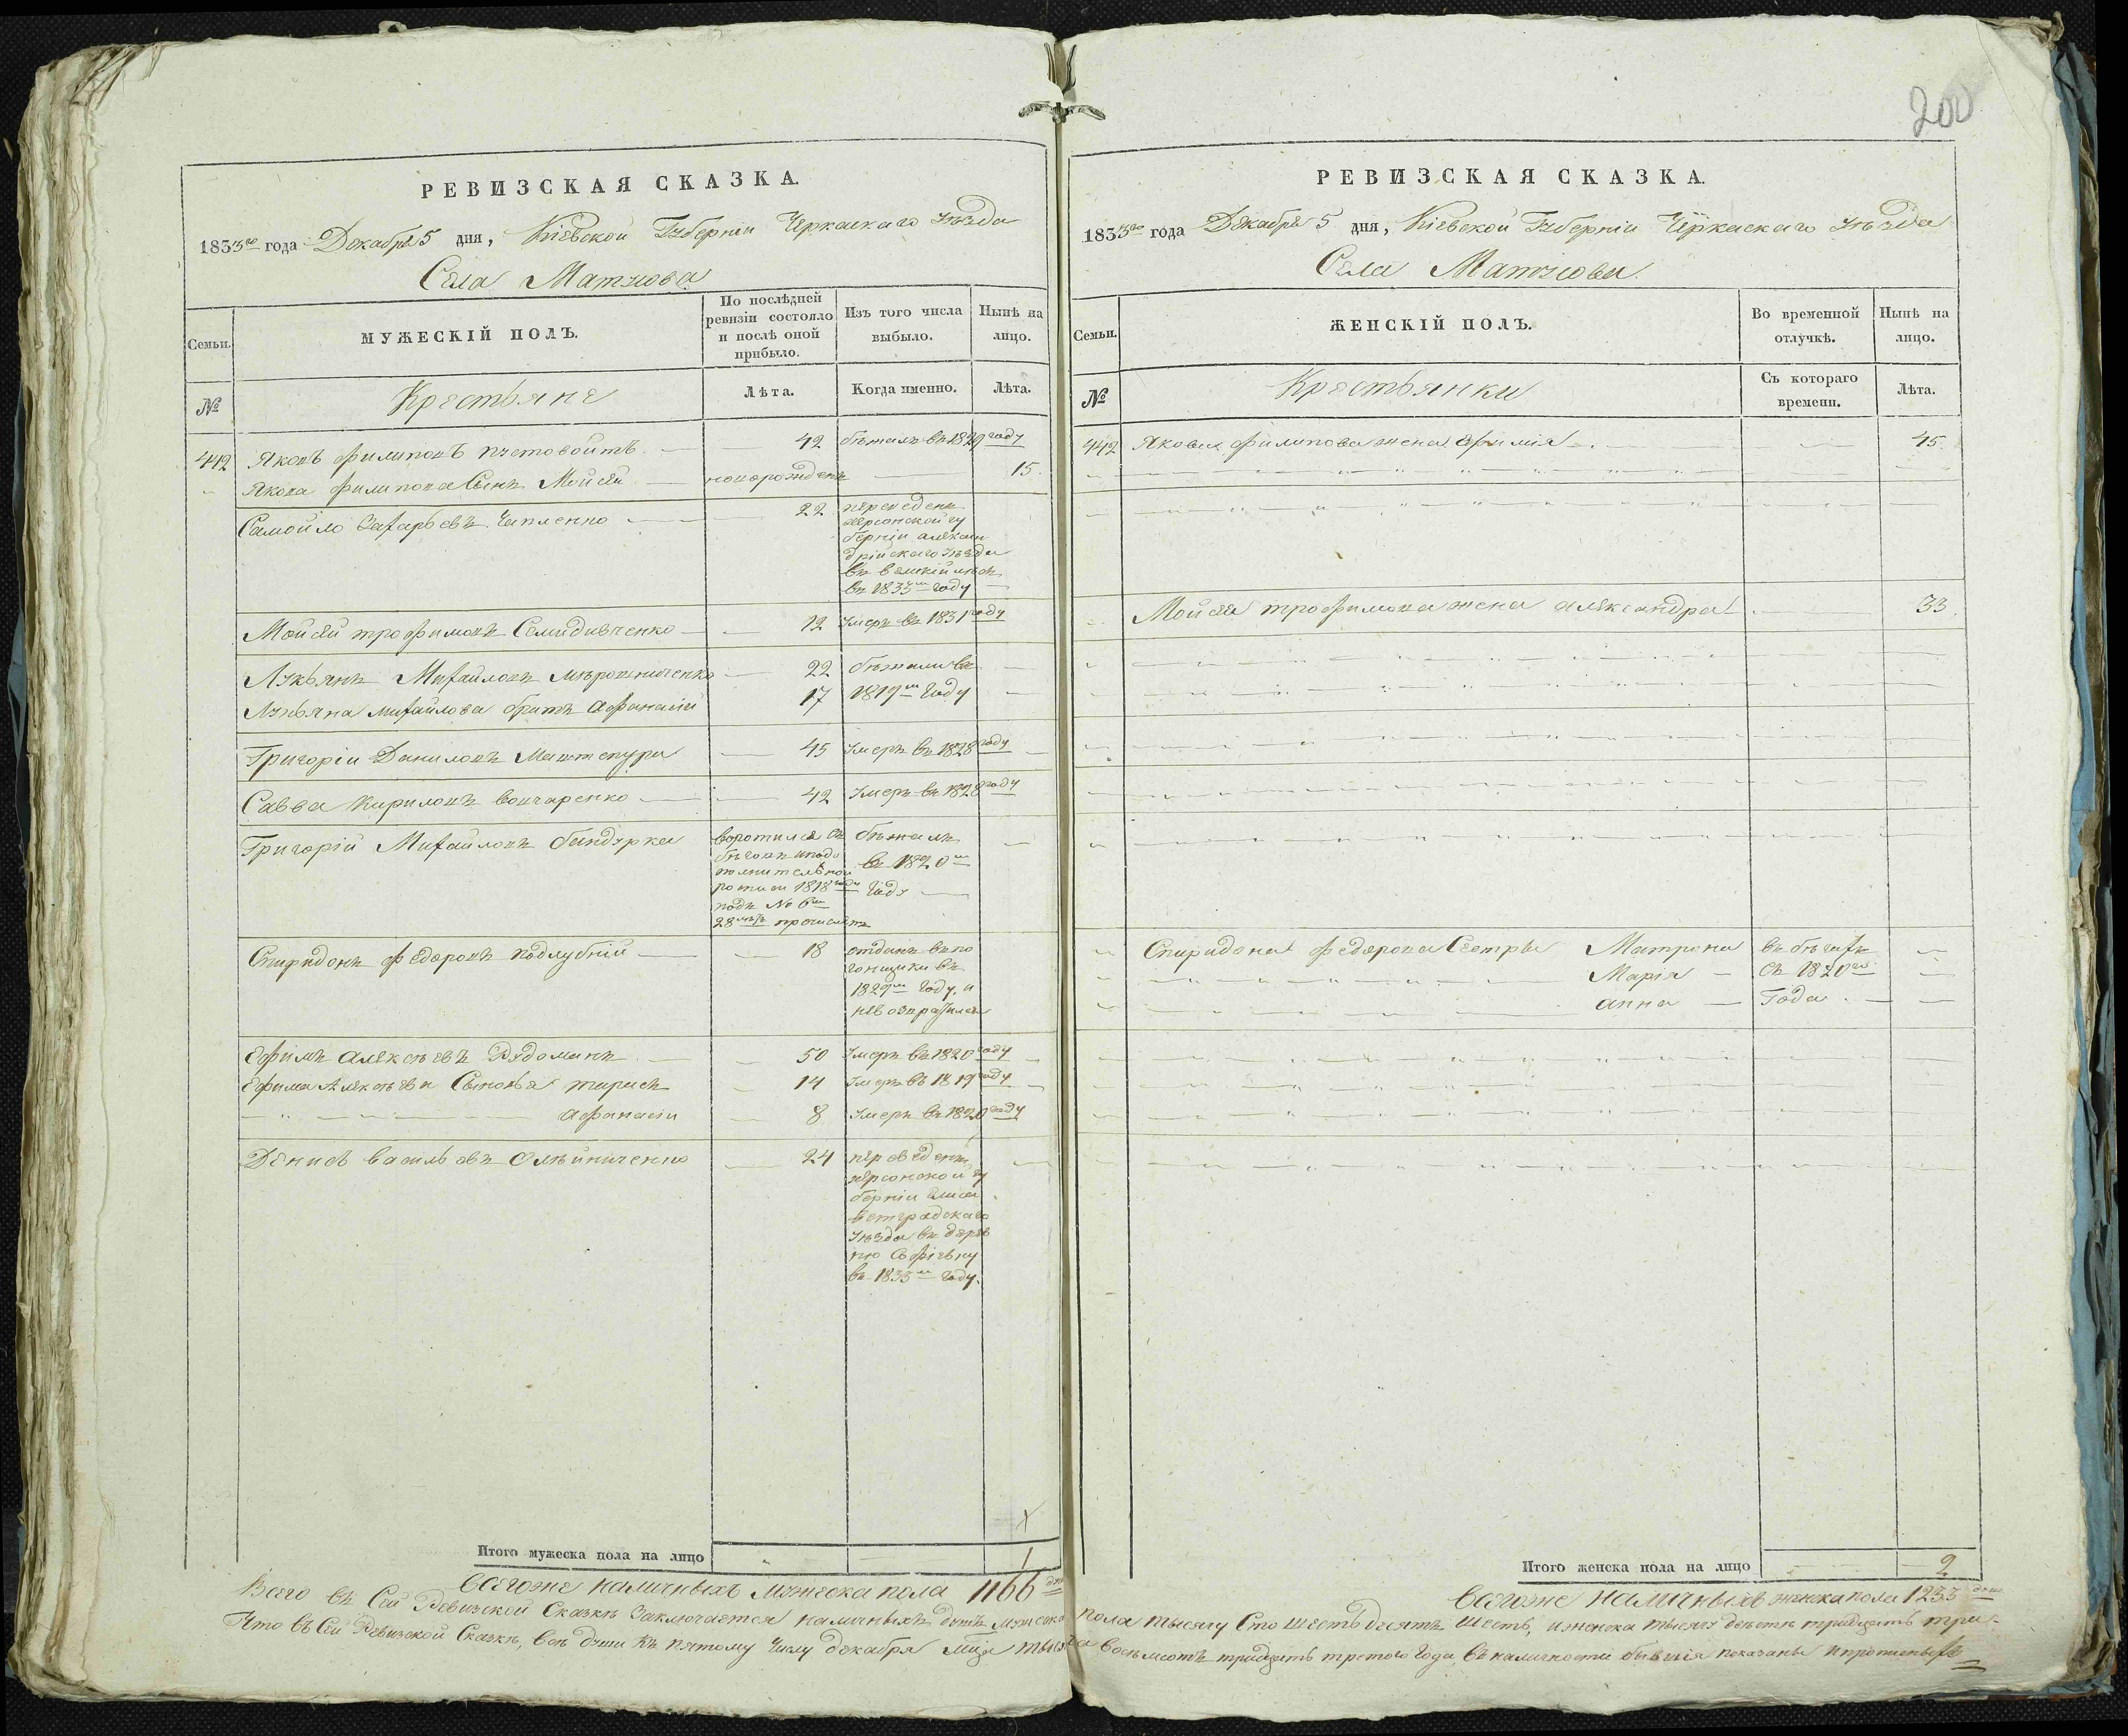 200
РЕВИЗСКАЯ СКАЗКА.
1833го года Декабря 5 дня, Кіевской Губерніи Черкаскаго Уѣзда
Села Матусова
Семьи.
МУЖЕСКІЙ ПОЛЪ.
По послѣдней
ревизіи состояло
и послѣ оной
прибыло.
Изъ того числа
выбыло.
Нынѣ на
лицо.
№
Крестьяне
Лѣта.
Когда именно.
Лѣта.
442 Яковъ Филиповъ — 42 бѣжалъ въ 1829 году
Якова Филипова Сынъ Мойсей — новорожденъ — 15.
Самойло Захарьевъ Чапленко — 22 переведенъ
херсонской гу
берніи алексан
дрійскаго уѣзда
въ 1833м году —
Мойсей трофимовъ Семидивченко — 12 умеръ въ 1831 году
Лукьянъ Михайловъ Мѣрошниченко — 22 бѣжали въ —
Лукьяна михайлова братъ Афанасій 17 1819м Году —
Григоріи Даниловъ — 45 Умеръ въ 1828 году —
Савва Кириловъ Бончаренко — 42 Умеръ въ 1828 году
Григорій Михайловъ бандурка воротился съ бѣжалъ —
въ 1820м
росписи 1818 года Году —
подъ № 6м
28
Спиридонъ Федоровъ Поддубній — 18 отданъ въ по
гонщики въ
1829м Году, и
невозвратился
Ефимъ Алексѣевъ Рудоманъ — 50 Умеръ въ 1820 году —
Ефима Алексѣева Сыновья тарасъ — 14 Умеръ въ 1819 году —
— " — Афанасіи — 8 Умеръ въ 1820 году
Денисъ Васильевъ Олѣйниченко — 24 переведенъ —
херсонской гу
берніи Елиса
ветградскаго
Уѣзда въ дерев
ню Софіевку
въ 1833м Году.
Итого мужеска пола на лицо 1
Всегоже наличныхъ мужеска пола 1166 душ
РЕВИЗСКАЯ СКАЗКА.
1833го года Декабря 5 дня, Кіевской Губерніи Черкаскаго Уѣзда
Села Матусова.
Семьи.
ЖЕНСКІЙ ПОЛЪ.
Во временной
отлучкѣ.
Нынѣ на
лицо.
№
Крестьянки
Съ котораго
времени.
Лѣта.
442 Якова Филипова жена Афимія — 45.
Мойсея трофимова жена александра — 33.
Спиридона Федорова Сестры Матрона въ бѣгахъ —
Марія — съ 1820го —
анна — Года. —
Итого женска пола на лицо 2
Всегоже наличныхъ женска пола 1233 душ
Всего въ Сей Ревизской Сказкѣ Заключается наличныхъ душъ мужеска пола тысячу Сто шестьдесятъ Шесть, и женска тысячу двѣстѣ тридцать три.
Что въ Сей Ревизской Сказкѣ, всѣ души къ пятому Числу декабря Мца тысяча восемьсотъ тридцать третого Года въ наличности бывшія показаны